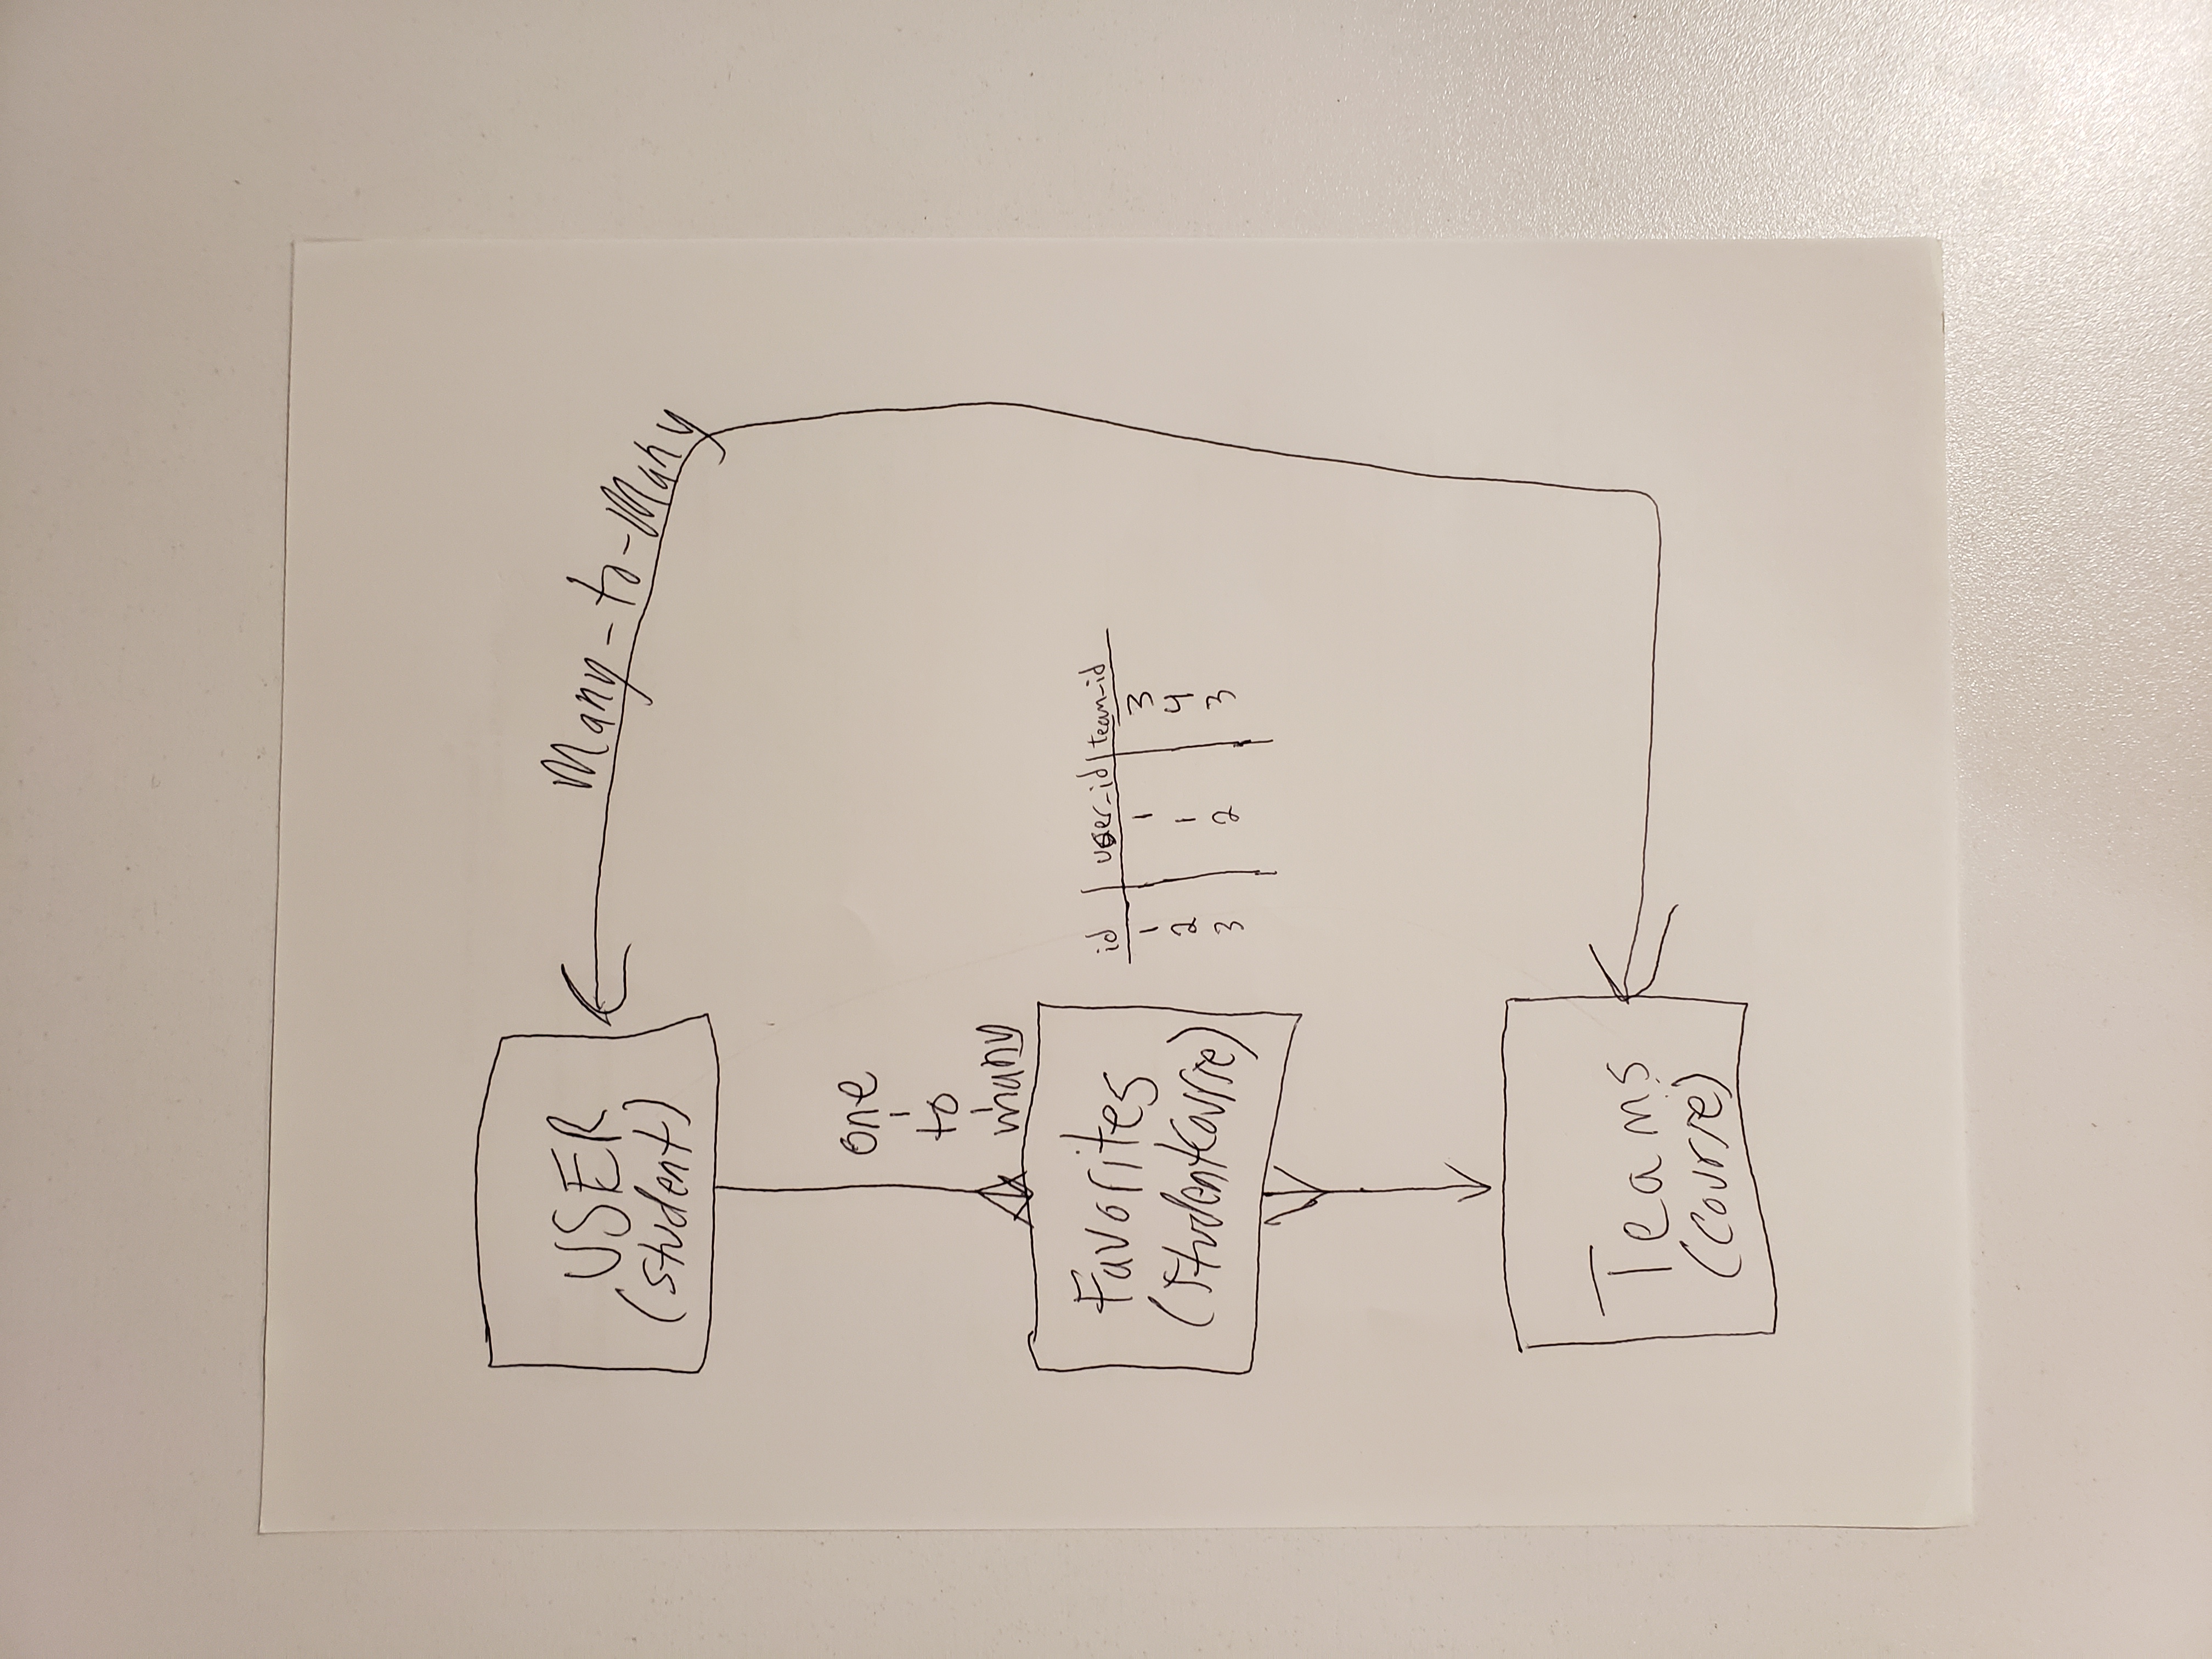 USER
(student)
Many-to-Many
one
-
to
-
many
Favorites
(StudentCourse)
id | user_id | team_id
1 | 1 | 3
2 | 1 | 4
3 | 2 | 3
Teams
(course)